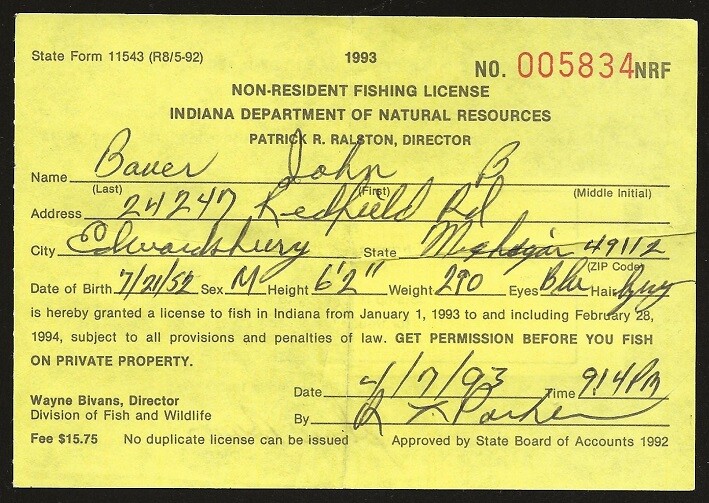 State Form 11543 (R8/5-92) 1993 NO. 005834NRF
NON-RESIDENT FISHING LICENSE
INDIANA DEPARTMENT OF NATURAL RESOURCES
PATRICK R. RALSTON, DIRECTOR
Name Bauer John B
(Last) (First) (Middle Initial)
Address 24247 Redfield Rd
City Edwardsburg State Michigan 49112
(ZIP Code)
Date of Birth 7/21/52 Sex M Height 6'2" Weight 290 Eyes Blu Hair
is hereby granted a license to fish in Indiana from January 1, 1993 to and including February 28,
1994, subject to all provisions and penalties of law. GET PERMISSION BEFORE YOU FISH
ON PRIVATE PROPERTY.
Date 4/7/93 Time 914PM
Wayne Bivans, Director
Division of Fish and Wildlife By Parker
Fee $15.75 No duplicate license can be issued Approved by State Board of Accounts 1992